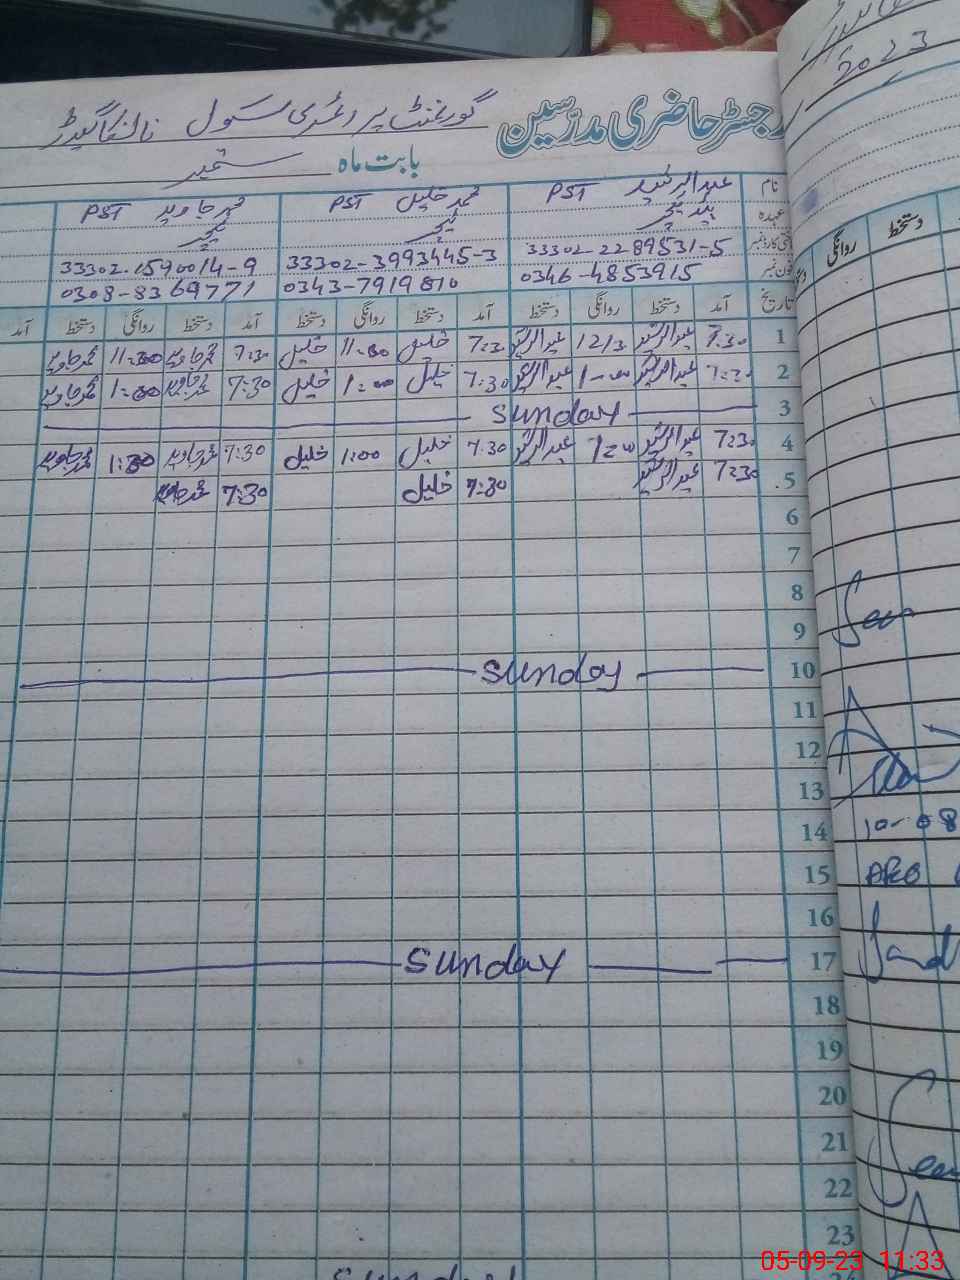 رجسٹر حاضری مدرسین گورنمنٹ پرائمری سکول
بابت ماہ ستمبر
نام عبدالرشید PST محمد خلیل PST محمد جاوید PST
عہدہ ہیڈ ٹیچر ٹیچر ٹیچر
شناختی کارڈ نمبر 33302-2289531-5 33302-3993445-3 33302-1590014-9
فون نمبر 0346-4853915 0343-7919810 0308-8369771
تاریخ آمد دستخط روانگی دستخط آمد دستخط روانگی دستخط آمد دستخط روانگی دستخط آمد
1 7:30 عبدالرشید عبدالرشید 7:30 خلیل خلیل 7:30 محمد جاوید محمد جاوید
2 7:30 عبدالرشید 1-00 عبدالرشید 7:30 خلیل 1:00 خلیل 7:30 محمد جاوید 1:00 محمد جاوید
3 Sunday
4 7:30 عبدالرشید عبدالرشید 7:30 خلیل 1:00 خلیل 7:30 محمد جاوید محمد جاوید
5 7:30 عبدالرشید 7:30 خلیل 7:30 محمد جاوید
6
7
8
9
10 Sunday
11
12
13
14
15
16
17 Sunday
18
19
20
21
22
23
Sunday
2023
دستخط روانگی
10-08
AEO
05-09-23 11:33